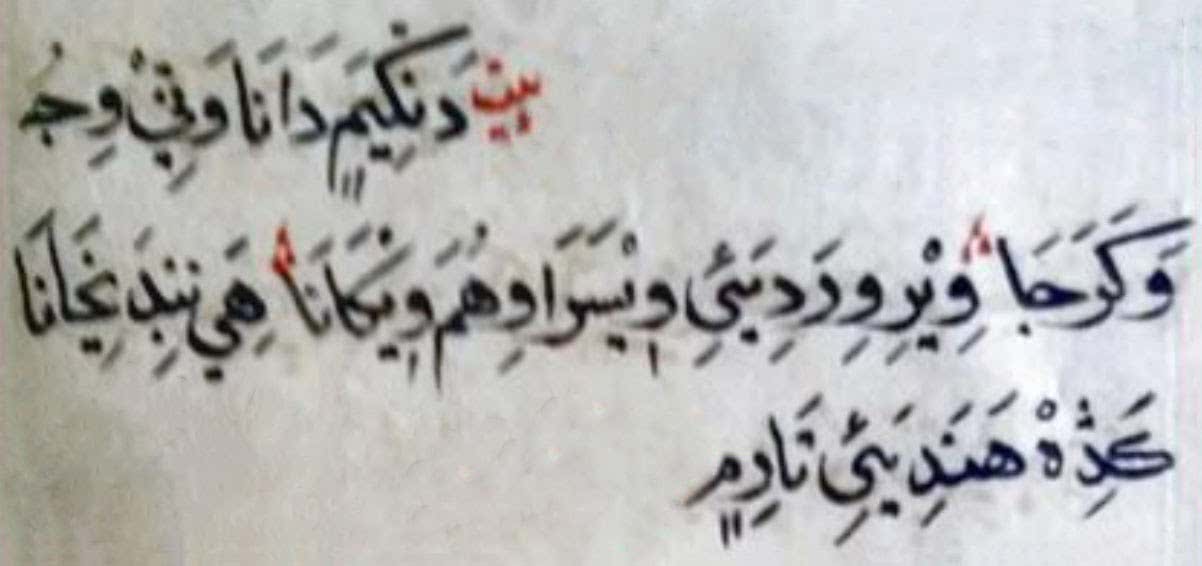 بيت دَنْكِيَمٍ دَانَا وَتِيْ وِجُ
وَكَرَجَا وِيْرِ وِرَدِيَئِ وِيْسَرَا وِهُمَ وِيْكَانَا هَيِ نِنِدَ نِجَانَا
كَڎِهْ هَنَدِيَئِ تَادِمٍ